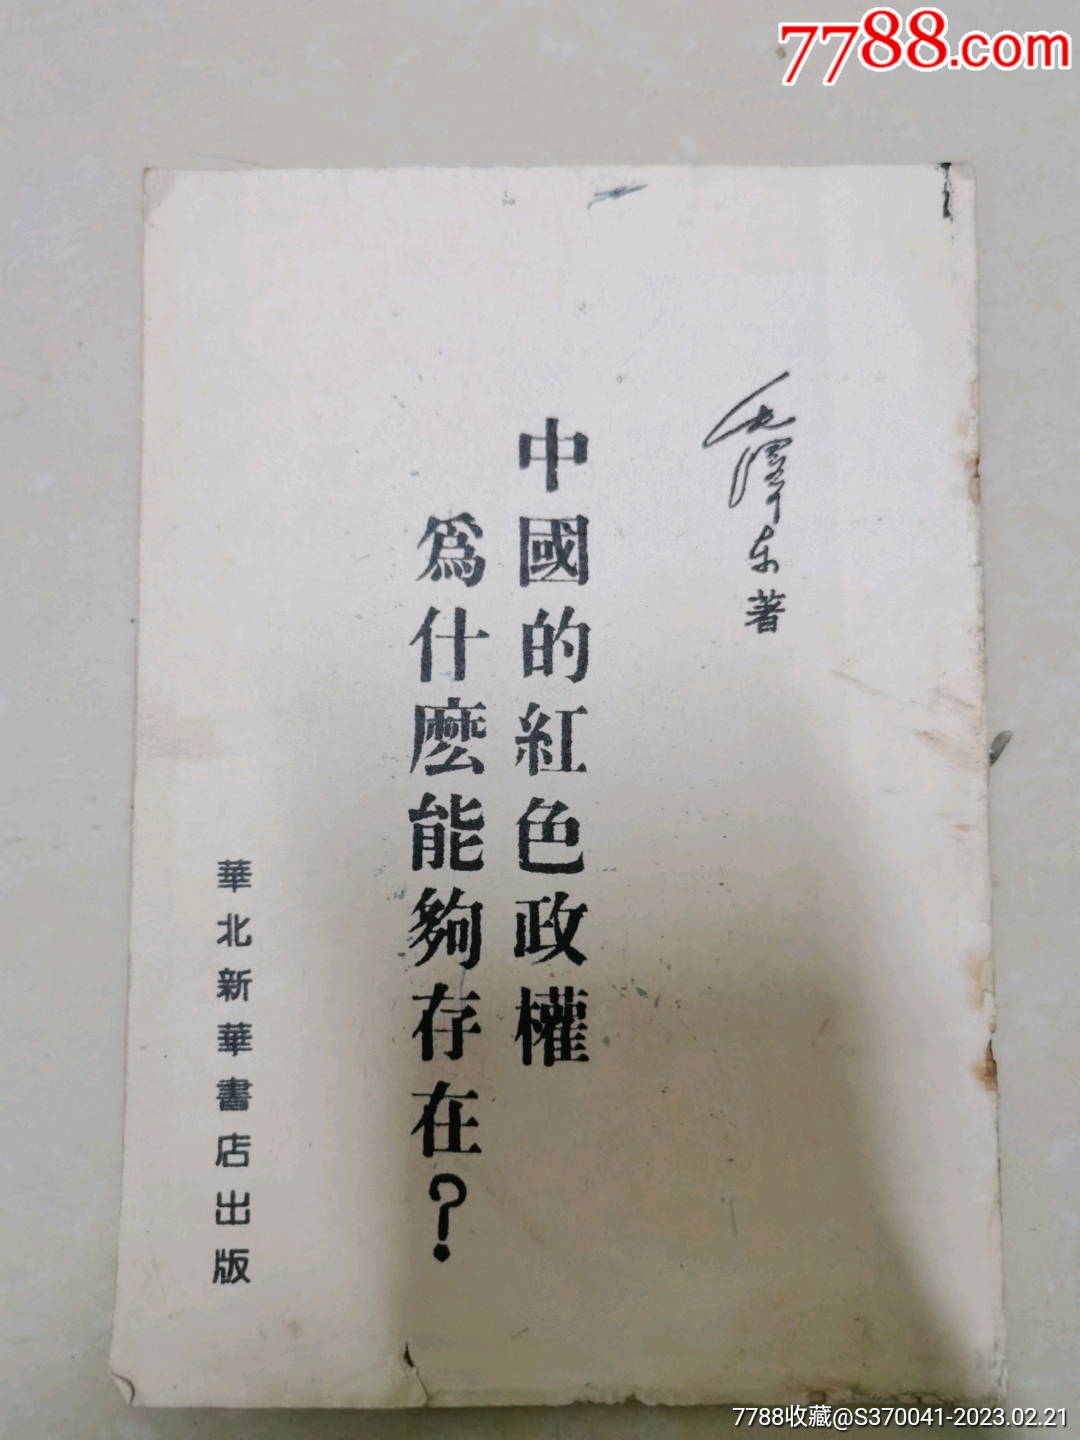 7788.com
毛澤东著
中國的紅色政權
爲什麽能夠存在?
華北新華書店出版
7788收藏@S370041-2023.02.21